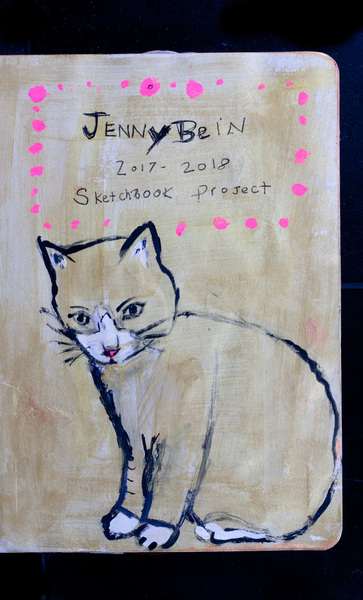 JENNy BeiN
2017- 2018
Sketchbook project